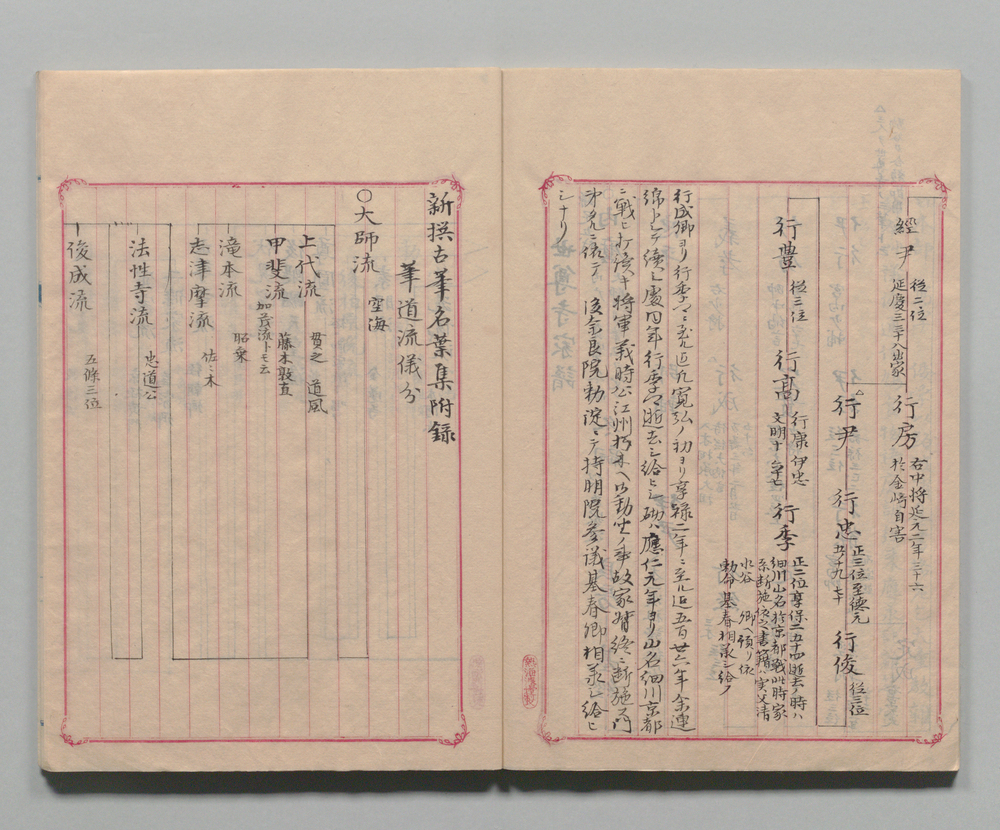 經尹
從二位
延慶三三十八出家
行房
右中将延元二年三十六
於金崎自害
行尹
行忠
正三位至德元
行俊
從三位
行豊
從三位
行高
行康 伊忠
文明十
行季
正二位享保二五十四逝去ノ時ハ
細川山名於京都戰此時家
系断施依之書籍ハ実父清
水谷 卿ヘ預リ依
勅命基春相承シ給フ
行成卿ヨリ行季マテ至ル近凡寛弘ノ初ヨリ享禄二年ニ至ル近五百廿六年余連
綿トシテ續シ處四年行季マ逝去シ給ヒシ砌ハ應仁元年ヨリ山名細川京都
ニ戰ヒ打續キ将軍義時公江州朽木ヘ御動坐ノ事故家皆終ニ断施ス
後奈良院勅淀ニテ持明院参議基春卿相承シ給ヒ
シナリ
新撰古筆名葉集附錄
筆道流儀分
○大師流
空海
上代流
貫之 道風
甲斐流
加茂流トモ云
藤木敦直
滝本流
昭乗
志津摩流
佐々木
法性寺流
忠道公
俊成流
五條三位